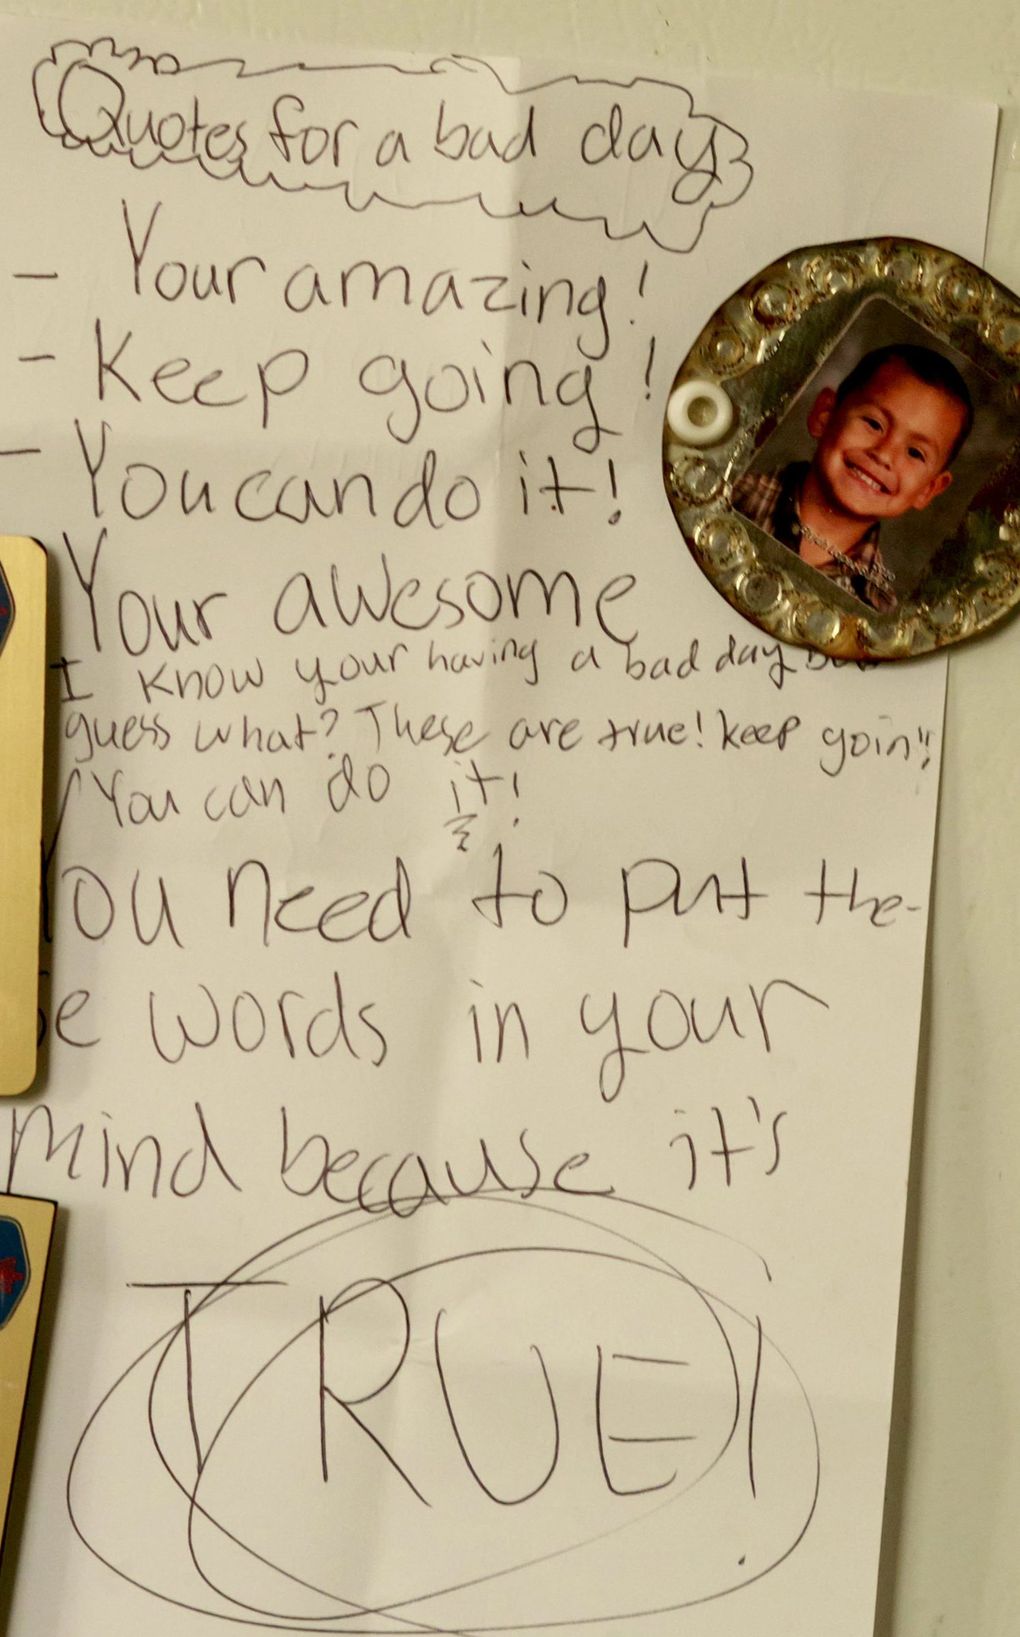 Quotes for a bad day
- Your amazing!
- Keep going!
- You can do it!
Your awesome
I know your having a bad day
guess what? These are true! keep goin!!
You can do it!
You need to put the-
se words in your
mind because it's
TRUE!